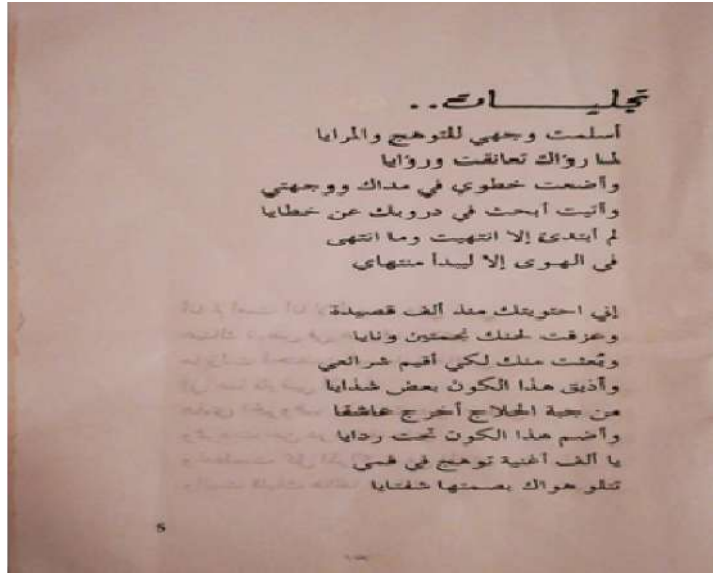 تجليــــــات..
أسلمت وجهي للتوهج والمرايا
لما رؤاك تعانقت ورؤايا
وأضعت خطوي في مداك ووجهتي
وأتيت أبحث في دروبك عن خطايا
لم أبتدئ إلا انتهيت وما انتهى
في الهوى إلا ليبدأ منتهاي
إني احتويتك منذ ألف قصيدة
وعزفت لحنك نجمتين ونايا
وبعثت منك لكي أقيم شرائعي
وأذيق هذا الكون بعض شذايا
من جبة الحلاج أخرج عاشقا
وأضم هذا الكون تحت ردايا
يا ألف أغنية توهج في فمي
تتلو هواك بصمتها شفتايا
5